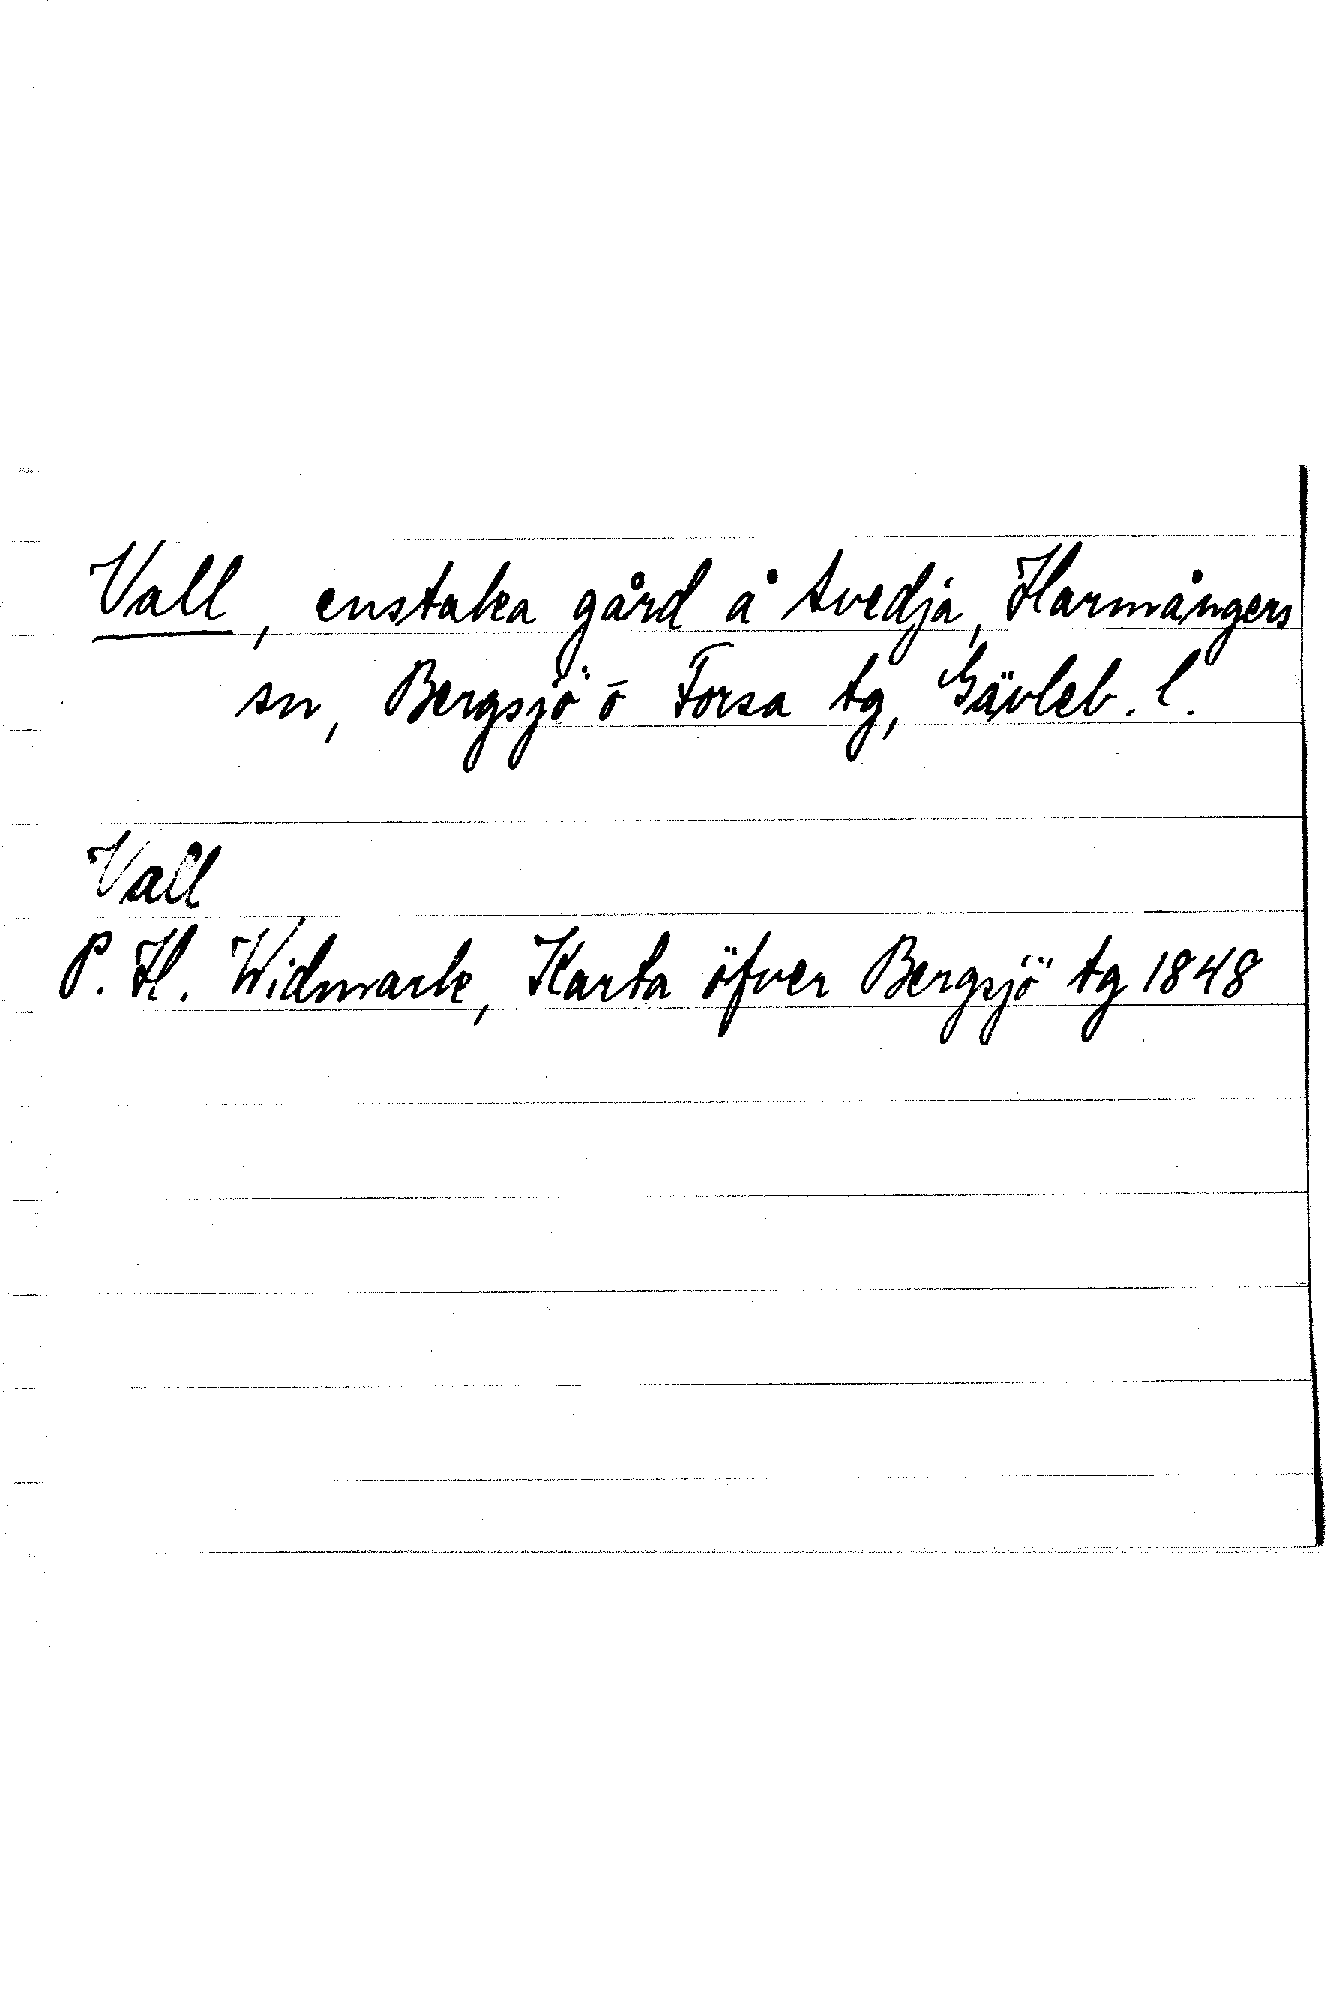 Vall, enstaka gård å tvedja, Harmångers
sn, Bergsjö o Forsa tg, Gävleb. l.
Vall
P. H. Widmark, Karta öfver Bergsjö tg 1848